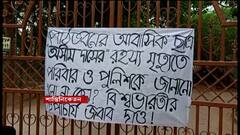 পাঠভবনের আবাসিক ছাত্র
অসীম দাসের রহস্য মৃত্যুতে
পরিবার ও পুলিশকে জানানো
হল না কেন? বিশ্বভারতীর
উপাচার্য জবাব দাও!
শান্তিনিকেতন